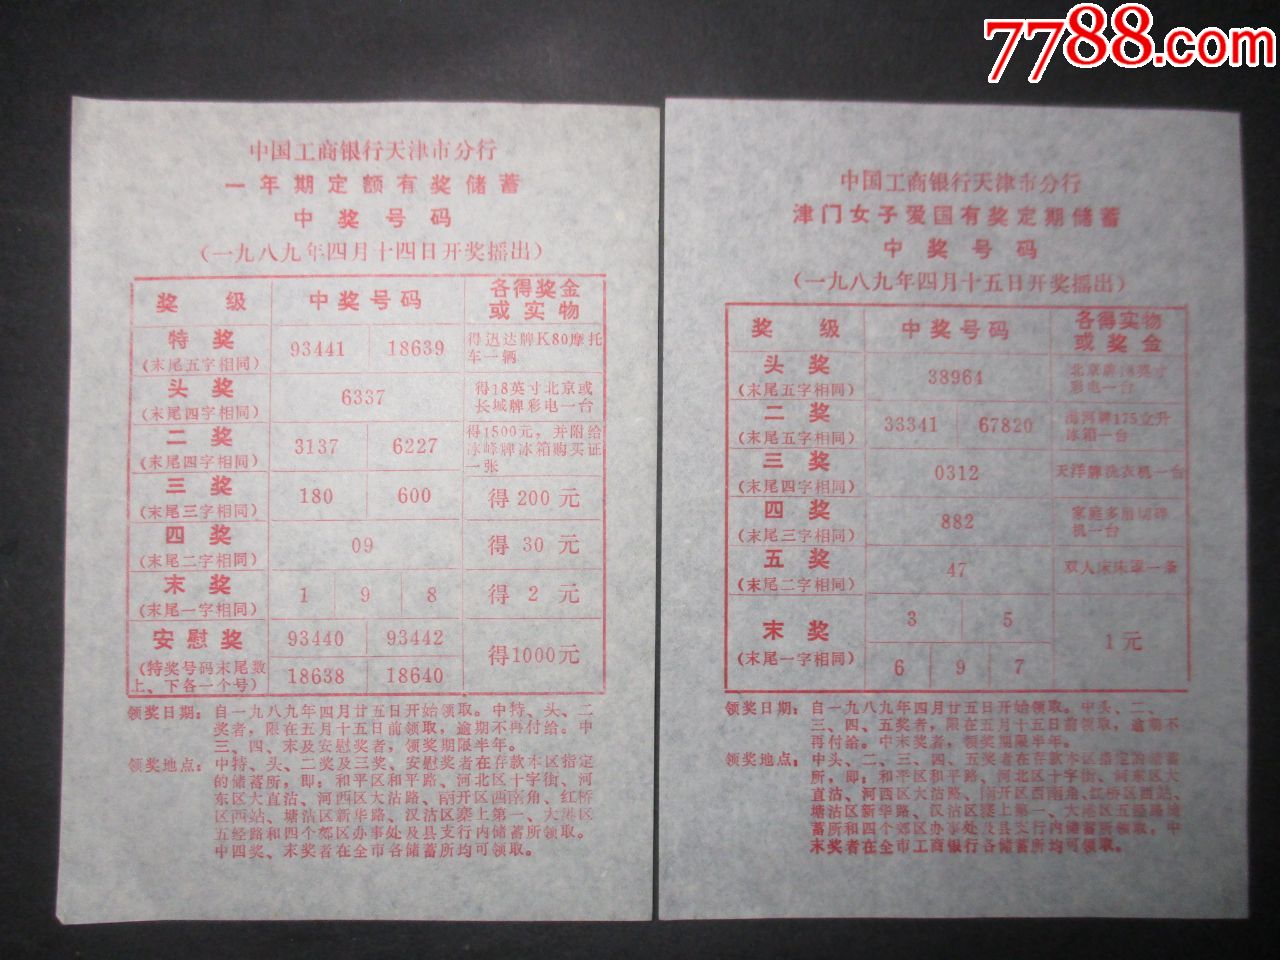 7788.com
中国工商银行天津市分行
一年期定额有奖储蓄
中奖号码
(一九八九年四月十四日开奖摇出)
奖级 中奖号码 各得奖金
或实物
特奖
(末尾五字相同)
93441 18639
得迅达牌K80摩托
车一辆
头奖
(末尾四字相同)
6337
得18英寸北京或
长城牌彩电一台
二奖
(末尾四字相同)
3137 6227
得1500元，并附给
冰峰牌冰箱购买证
一张
三奖
(末尾三字相同)
180 600
得200元
四奖
(末尾二字相同)
09
得30元
末奖
(末尾一字相同)
1 9 8
得2元
安慰奖
(特奖号码末尾数
上、下各一个号)
93440 93442
18638 18640
得1000元
领奖日期：自一九八九年四月廿五日开始领取。中特、头、二
奖者，限在五月十五日前领取，逾期不再付给。中
三、四、末及安慰奖者，领奖期限半年。
领奖地点：中特、头、二奖及三奖、安慰奖者在存款本区指定
的储蓄所，即：和平区和平路、河北区十字街、河
东区大直沽、河西区大沽路、南开区西南角、红桥
区西站、塘沽区新华路、汉沽区寨上第一、大港区
五经路和四个郊区办事处及县支行内储蓄所领取。
中四奖、末奖者在全市各储蓄所均可领取。
中国工商银行天津市分行
津门女子爱国有奖定期储蓄
中奖号码
(一九八九年四月十五日开奖摇出)
奖级 中奖号码 各得实物
或奖金
头奖
(末尾五字相同)
38964
北京牌18英寸
彩电一台
二奖
(末尾五字相同)
33341 67820
海河牌175立升
冰箱一台
三奖
(末尾四字相同)
0312
天洋牌洗衣机一台
四奖
(末尾三字相同)
882
家庭多用切碎
机一台
五奖
(末尾二字相同)
47
双人床床罩一条
末奖
(末尾一字相同)
3 5
6 9 7
1元
领奖日期：自一九八九年四月廿五日开始领取。中头、二、
三、四、五奖者，限在五月十五日前领取，逾期不
再付给。中末奖者，领奖期限半年。
领奖地点：中头、二、三、四、五奖者在存款本区指定的储蓄
所，即：和平区和平路、河北区十字街、河东区大
直沽、河西区大沽路、南开区西南角、红桥区西站、
塘沽区新华路、汉沽区寨上第一、大港区五经路储
蓄所和四个郊区办事处及县支行内储蓄所领取。中
末奖者在全市工商银行各储蓄所均可领取。